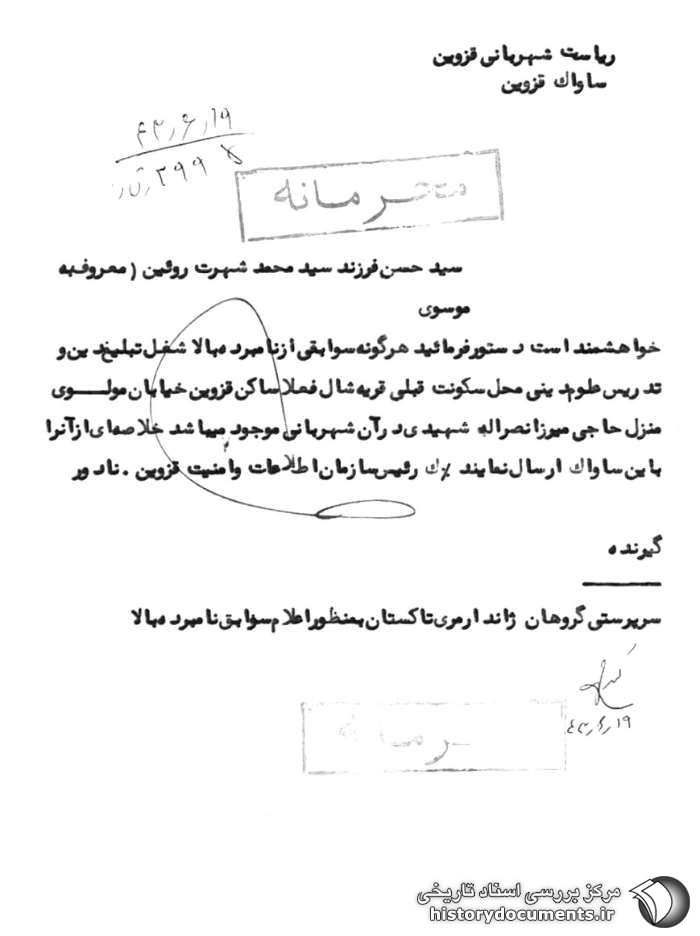 ریاست شهربانی قزوین
ساواك قزوین
۴۳٫۶٫۱۹
۲۹۹
محرمانه
سید حسن فرزند سید محمد شهرت روئین (معروف به
موسوی
خواهشمند است دستور فرمائید هرگونه سوابقی از نامبرده بالا شغل تبلیغ دین و
تدریس علوم دینی محل سکونت قبلی قریه شال فعلا ساکن قزوین خیابان مولوی
منزل حاجی میرزا نصراله شهیدی در آن شهربانی موجود میباشد خلاصه‌ای از آنرا
باین ساواك ارسال نمایند رئیس سازمان اطلاعات وامنیت قزوین . نادور
گیرنده
سرپرستی گروهان ژاندارمری تاکستان بمنظور اعلام سوابق نامبرده بالا
۴۳٫۶٫۱۹
رمانه
مرکز بررسی اسناد تاریخی
historydocuments.ir